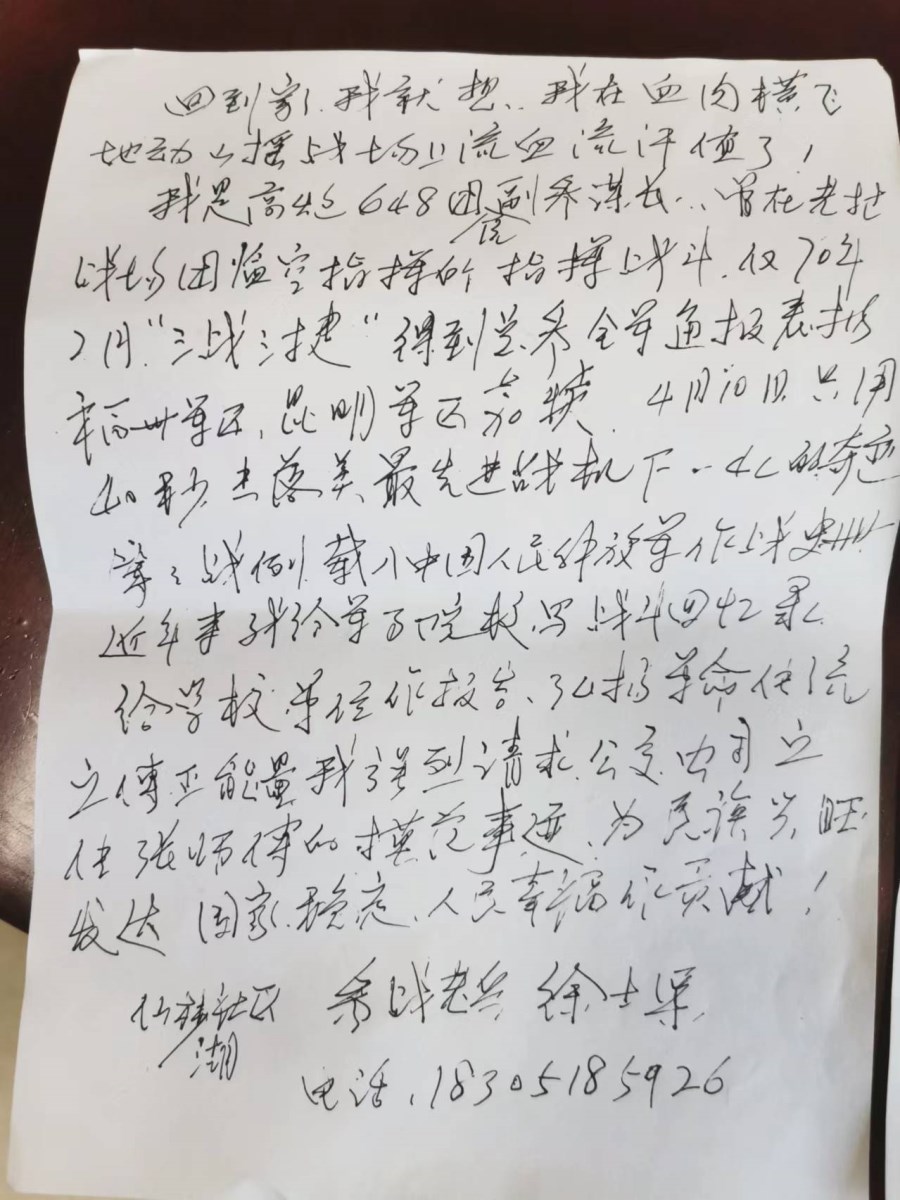 回到家、我就想、我在血肉横飞
地动山摇战场上流血流汗值了！
我是高炮648团副参谋长、曾在老挝
战场团临空指挥所指挥战斗、仅70年
2月“三战三捷”得到总参全军通报表扬
福州军区、昆明军区嘉奖、4月10日只用
40秒击落美最先进战机下-4C的奇迹
等之战例载入中国人民解放军作战史册
近年来我给军百院校写战斗回忆录
给学校单位作报告、弘扬革命传统
立传正能量我强烈请求公交公司立
传张师傅的模范事迹、为民族兴旺
发达 国家稳定、人民幸福作贡献！
仙林社区 参战老兵 徐士
湖
电话、18305185926